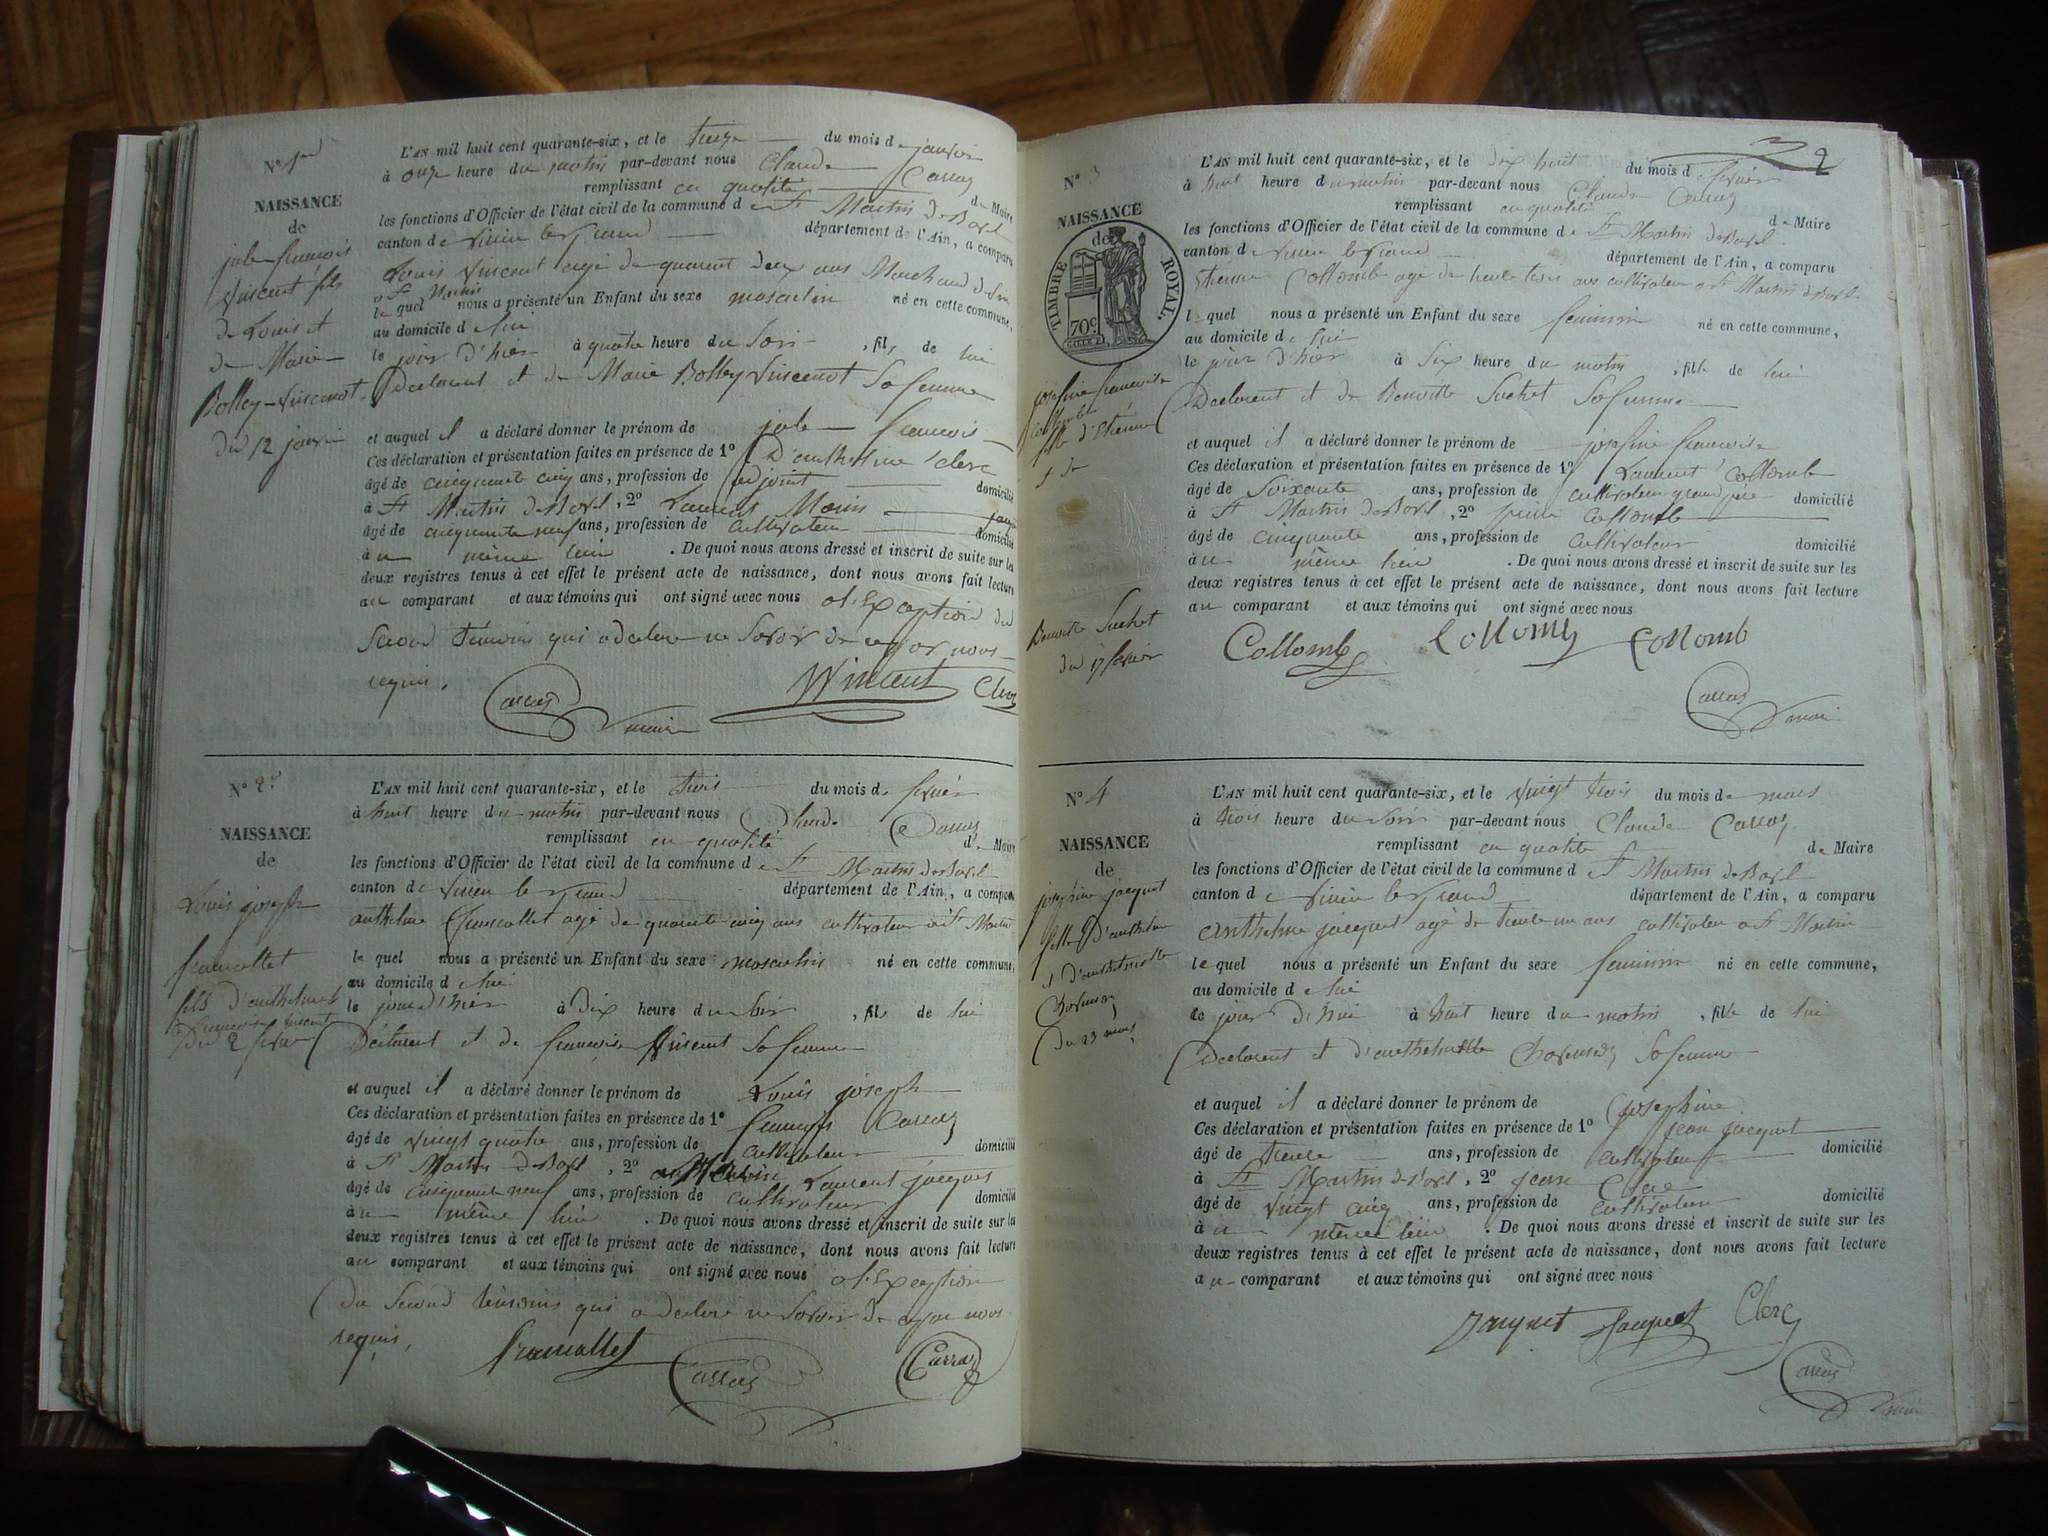 N° 1er
NAISSANCE
de
jule françois
Vincent fils
de Louis et
de Marie
Bolley-Vincent
du 12 janvier
L'AN mil huit cent quarante-six, et le treize du mois de janvier
à onze heure du matin par-devant nous Claude Carraz
remplissant en qualité de Maire
les fonctions d'Officier de l'état civil de la commune de St Martin de Bavel
canton de Virieu le Grand département de l'Ain, a comparu
Louis Vincent agé de quarent deux ans Marchand
à St Martin
le quel nous a présenté un Enfant du sexe masculin né en cette commune,
au domicile de lui
le jour d'hier à quatre heure du soir, fils de lui
Declarent et de Marie Bolley Vincent Sa femme
et auquel il a déclaré donner le prénom de jule françois
Ces déclaration et présentation faites en présence de 1° D'anthelme Clerc
âgé de cinquante cinq ans, profession de adjoint domicilié
à St Martin de Bavel, 2° Laurent Morin
âgé de cinquante neuf ans, profession de cultivateur domicilié
à u même lieu. De quoi nous avons dressé et inscrit de suite sur les
deux registres tenus à cet effet le présent acte de naissance, dont nous avons fait lecture
au comparant et aux témoins qui ont signé avec nous à l'Exception du
Second témoins qui a declare ne Savoir de ce par nous
requis.
Vincent Clerc
Carraz maire
N° 2
NAISSANCE
de
Louis joseph
francallet
fils d'anthelme
françoise Vincent
du 2 fevrier
L'AN mil huit cent quarante-six, et le trois du mois de fevrier
à huit heure du matin par-devant nous Claude Carraz
remplissant en qualité de Maire
les fonctions d'Officier de l'état civil de la commune de St Martin de Bavel
canton de Virieu le Grand département de l'Ain, a comparu
anthelme francallet agé de quarante cinq ans cultivateur à St Martin
le quel nous a présenté un Enfant du sexe masculin né en cette commune,
au domicile de lui
le jour d'hier à dix heure du soir, fils de lui
Déclarent et de françoise Vincent Sa femme
et auquel il a déclaré donner le prénom de Louis joseph
Ces déclaration et présentation faites en présence de 1° françois Carraz
âgé de vingt quatre ans, profession de cultivateur domicilié
à St Martin de Bavel, 2° Laurent jacques
âgé de cinquante neuf ans, profession de cultivateur domicilié
à u même lieu. De quoi nous avons dressé et inscrit de suite sur les
deux registres tenus à cet effet le présent acte de naissance, dont nous avons fait lecture
au comparant et aux témoins qui ont signé avec nous à l'Exception
du Second témoins qui a declaré ne Savoir de ce par nous
requis.
francallet Carraz Carraz
2
N° 3
NAISSANCE
de
TIMBRE ROYAL.
70c.
josefine françoise
Collomb
fille d'Etienne
et de
Benoitte Suchet
du 17 fevrier
L'AN mil huit cent quarante-six, et le dix huit du mois de fevrier
à huit heure du matin par-devant nous Claude Carraz
remplissant en qualité de Maire
les fonctions d'Officier de l'état civil de la commune de St Martin de Bavel
canton de Virieu le Grand département de l'Ain, a comparu
Etienne Collomb agé de trente trois ans cultivateur à St Martin de Bavel
le quel nous a présenté un Enfant du sexe feminin né en cette commune,
au domicile de lui
le jour d'hier à six heure du matin, fille de lui
Declarent et de Benoitte Suchet Sa femme
et auquel il a déclaré donner le prénom de josefine françoise
Ces déclaration et présentation faites en présence de 1° Laurent Collomb
âgé de Soixante ans, profession de cultivateur grand père domicilié
à St Martin de Bavel, 2° Collomb
âgé de cinquante ans, profession de cultivateur domicilié
à u même lieu. De quoi nous avons dressé et inscrit de suite sur les
deux registres tenus à cet effet le présent acte de naissance, dont nous avons fait lecture
au comparant et aux témoins qui ont signé avec nous
Collomb Collomb Collomb
Carraz maire
N° 4
NAISSANCE
de
joséphine jacquet
fille d'anthelme
et d'anthelmette
Charvet
du 23 mars
L'AN mil huit cent quarante-six, et le vingt trois du mois de mars
à trois heure du soir par-devant nous Claude Carraz
remplissant en qualité de Maire
les fonctions d'Officier de l'état civil de la commune de St Martin de Bavel
canton de Virieu le Grand département de l'Ain, a comparu
anthelme jacquet agé de trente un ans cultivateur à St Martin
le quel nous a présenté un Enfant du sexe feminin né en cette commune,
au domicile de lui
le jour d'hui à huit heure du matin, fille de lui
Declarent et d'anthelmette Sa femme
et auquel il a déclaré donner le prénom de josephine
Ces déclaration et présentation faites en présence de 1° jean jacquet
âgé de trente ans, profession de cultivateur domicilié
à St Martin de Bavel, 2° Clerc
âgé de vingt cinq ans, profession de cultivateur domicilié
à u même lieu. De quoi nous avons dressé et inscrit de suite sur les
deux registres tenus à cet effet le présent acte de naissance, dont nous avons fait lecture
au comparant et aux témoins qui ont signé avec nous
Jacquet Jacquet Clerc
Carraz maire